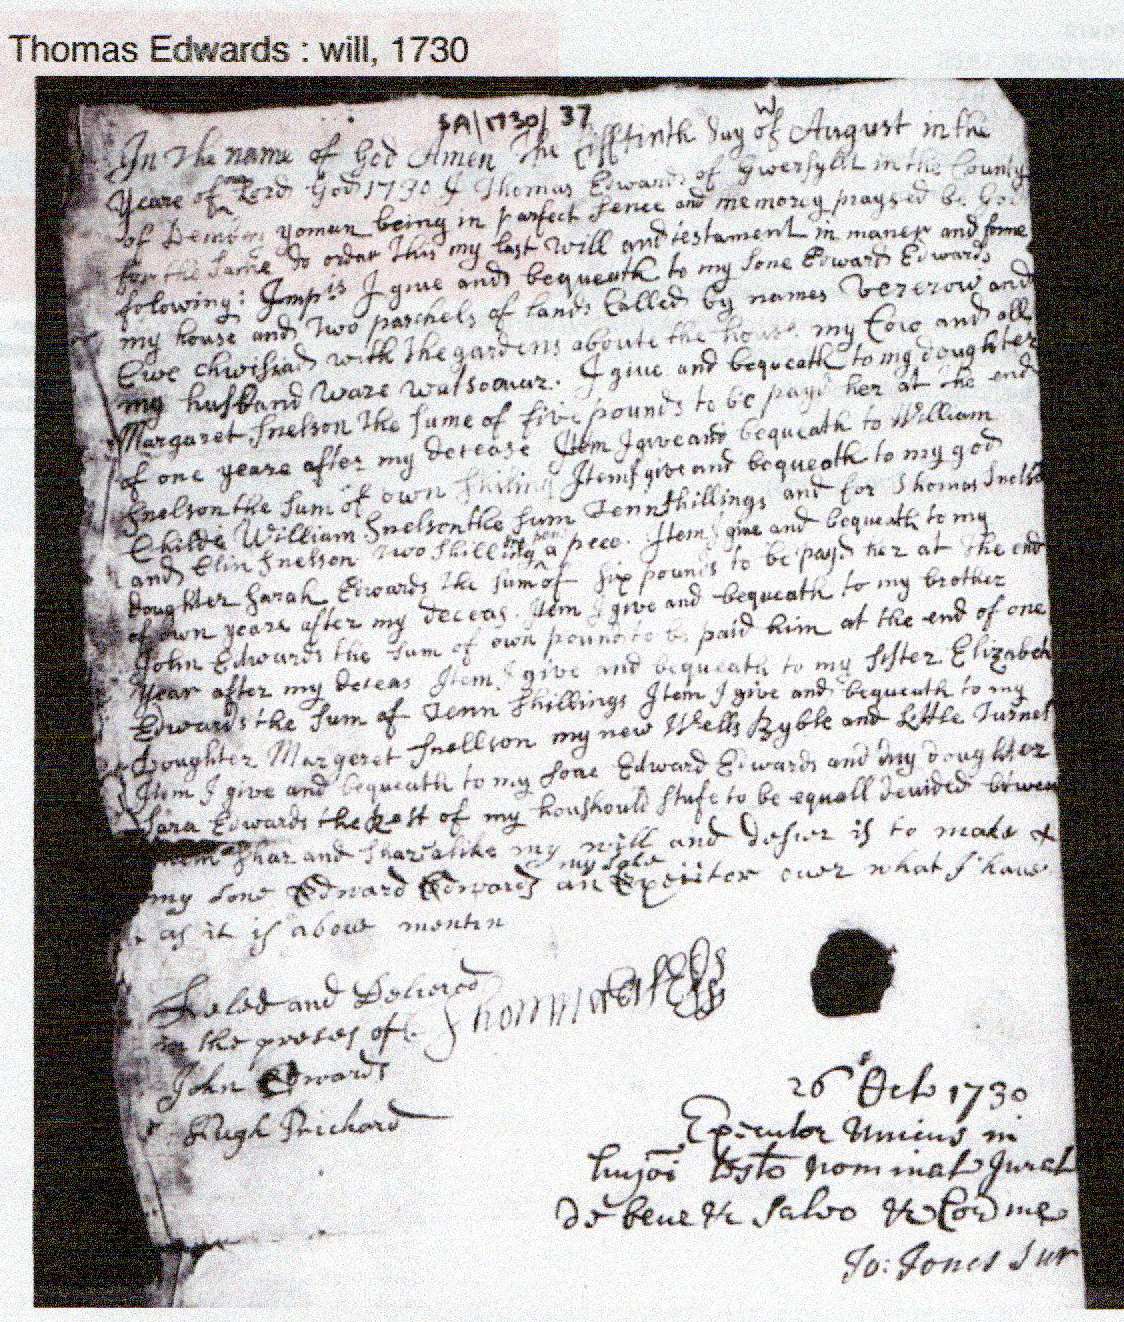 Thomas Edwards : will, 1730
SA/1730/ 37
In the name of God Amen The fifftinth day of August in the
Yeare of our Lord God 1730 I Thomas Edwards of Gwersyllt in the County
of Denbigh yoman being in parfect sence and memorey praysed be God
for the same do order this my last will and testament in maner and forme
folowing: Imp:is I give and bequeath to my sone Edward Edwards
my house and two parchels of lands called by names and
with the gardens aboute the house my Cow and all
my husband ware watsoever. I give and bequeath to my doughter
Margaret Snelson the sume of five pounds to be payd her at the end
of one yeare after my decease Item I give and bequeath to William
Snelson the sum of own shiling Item I give and bequeath to my god
Childe William Snelson the sum Tenn shillings and for Thomas Snelson
and Elin Snelson two shilling a peec. Item I give and bequeath to my
doughter Sarah Edwards the sum of six pounds to be payd her at the end
of own yeare after my deceas. Item I give and bequeath to my brother
John Edwards the sum of own pound to be paid him at the end of one
Year after my deceas Item I give and bequeath to my sister Elizabeth
Edwards the sum of Tenn shillings Item I give and bequeath to my
Doughter Margeret Snellson my new Wells Byble and Little Turnel
Item I give and bequeath to my sone Edward Edwards and my doughter
Sara Edwards the Rest of my houshould stufe to be equall devided betwen
them shar and shar alike my will and desier is to make &
my sole
my sone Edward Edwards an Execitor over what I have
as it is above mentin
Seled and Delivered
in the preses of
Thomas Edwards
John Edwards
Hugh Prichard
26º Octo 1730
Executor Unicus in
hujoi testo nominat Jurat
de bene &c salvo &c Cor me
Jo: Jones Sur